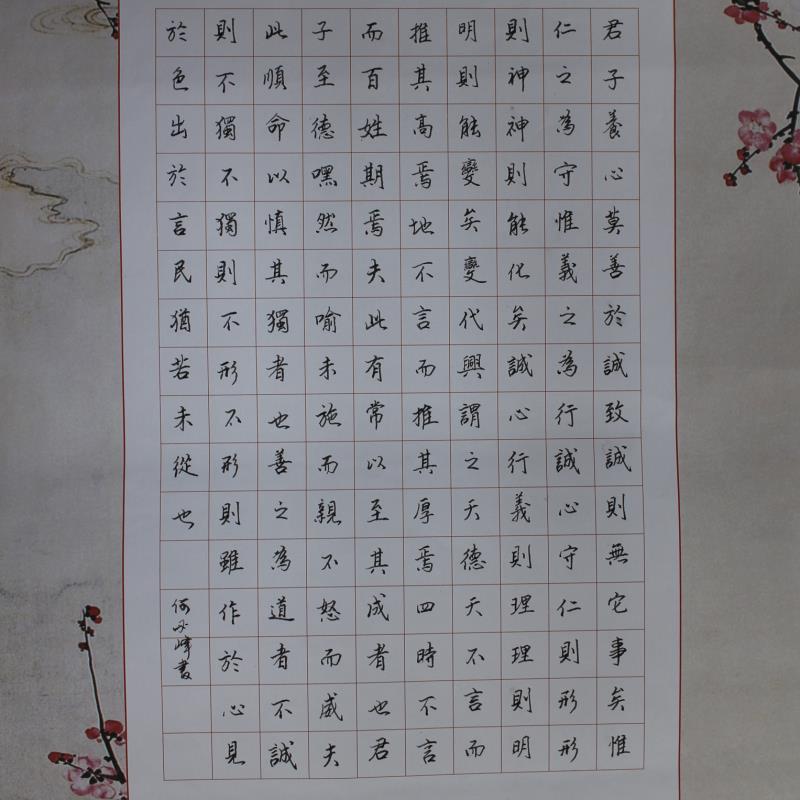 君子養心莫善於誠致誠則無它事矣惟
仁之為守惟義之為行誠心守仁則形形
則神神則能化矣誠心行義則理理則明
明則能變矣變代興謂之天德天不言而
推其高焉地不言而推其厚焉四時不言
而百姓期焉夫此有常以至其成者也君
子至德嘿然而喻未施而親不怒而威夫
此順命以慎其獨者也善之為道者不誠
則不獨不獨則不形不形則雖作於心見
於色出於言民猶若未從也
何峰書